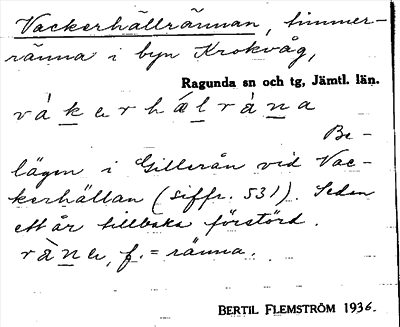 Vackerhällrännan, timmer-
ränna i byn Krokvåg,
Ragunda sn och tg, Jämtl. län.
Be-
lägen i Gillerån vid Vac-
kerhällan (siffr. 531). Sedan
ett år tillbaka förstörd.
f. = ränna.
BERTIL FLEMSTRÖM 1936.